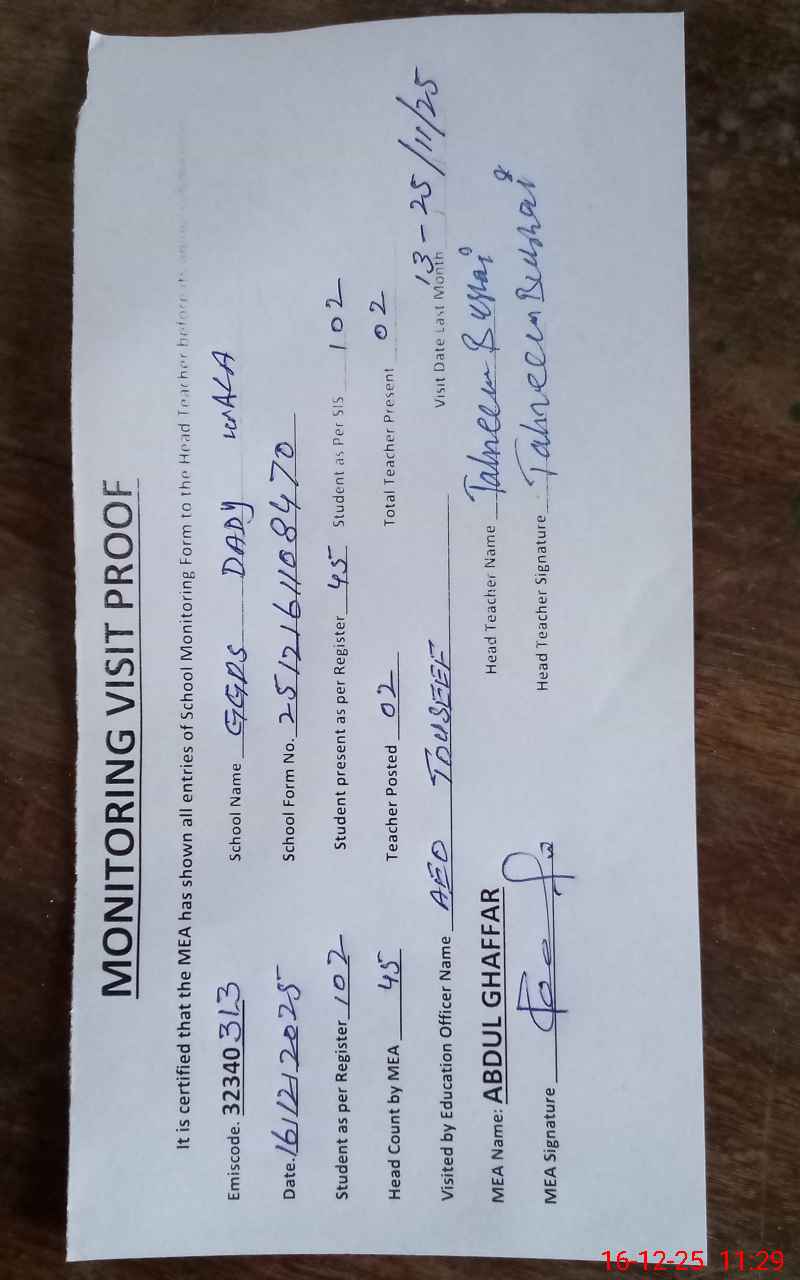 MONITORING VISIT PROOF
It is certified that the MEA has shown all entries of School Monitoring Form to the Head Teacher before
Emiscode. 32340313 School Name GGPS DADY WALA
Date. 16/12/2025 School Form No. 2512161108470
Student as per Register 102 Student present as per Register 45 Student as Per SIS 102
Head Count by MEA 45 Teacher Posted 02 Total Teacher Present 02
Visited by Education Officer Name AEO TOUSEEF Visit Date Last Month 13 - 25/11/25
MEA Name: ABDUL GHAFFAR Head Teacher Name Tahreem
MEA Signature Head Teacher Signature Tahreem
16-12-25 11:29